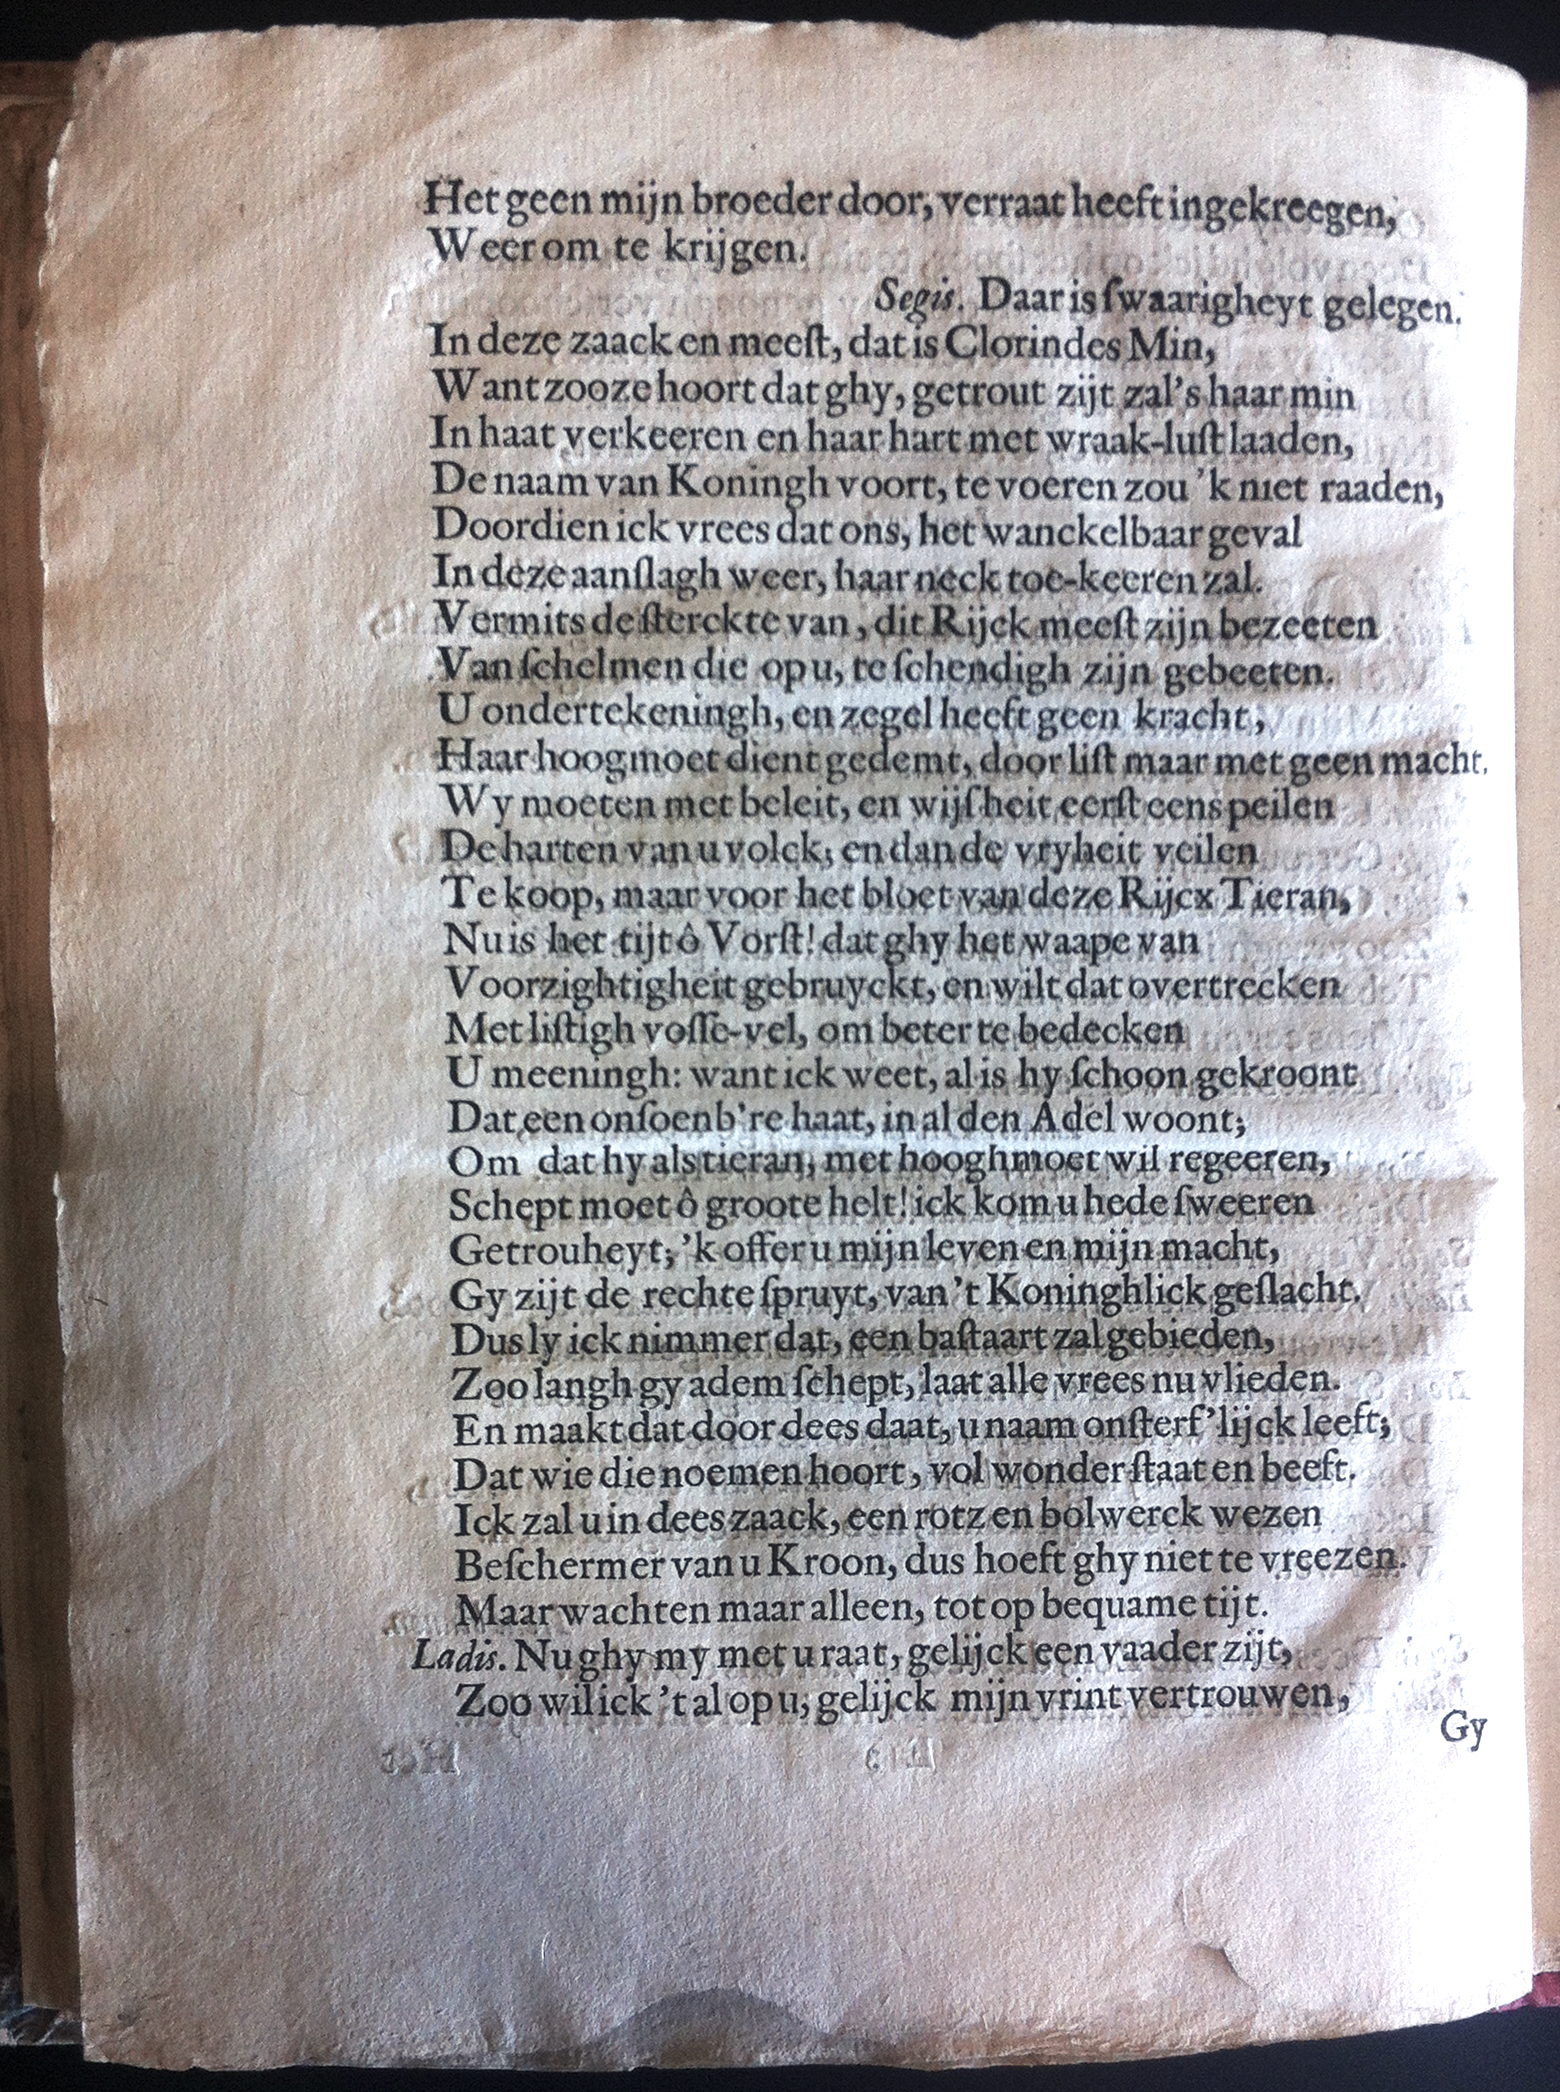 Het geen mijn broeder door, verraat heeft ingekreegen,
Weerom te krijgen.
Segis. Daar is ſwaarigheyt gelegen.
In deze zaack en meeſt, dat is Clorindes Min,
Want zooze hoort dat ghy, getrout zijt zal's haar min
In haat verkeeren en haar hart met wraak-luſt laaden,
De naam van Koningh voort, te voeren zou 'k niet raaden,
Doordien ick vrees dat ons, het wanckelbaar geval
In deze aanſlagh weer, haar neck toe-keeren zal.
Vermits de ſterckte van, dit Rijck meeſt zijn bezeeten
Van ſchelmen die op u, te ſchendigh zijn gebeeten.
U ondertekeningh, en zegel heeft geen kracht,
Haar hoogmoet dient gedemt, door liſt maar met geen macht.
Wy moeten met beleit, en wijſheit eerſt eens peilen
De harten van u volck, en dan de vryheit veilen
Te koop, maar voor het bloet van deze Rijcx Tieran,
Nu is het tijt ô Vorſt! dat ghy het waape van
Voorzightigheit gebruyckt, en wilt dat overtrecken
Met liſtigh voſſe-vel, om beter te bedecken
U meeningh: want ick weet, al is hy ſchoon gekroont
Dat een onſoenb're haat, in al den Adel woont;
Om dat hy als tieran, met hooghmoet wil regeeren,
Schept moet ô groote helt! ick kom u hede ſweeren
Getrouheyt; 'k offer u mijn leven en mijn macht,
Gy zijt de rechte ſpruyt, van 't Koninghlick geſlacht.
Dus ly ick nimmer dat, een baſtaart zal gebieden,
Zoo langh gy adem ſchept, laat alle vrees nu vlieden.
En maakt dat door dees daat, u naam onſterf'lijck leeft;
Dat wie die noemen hoort, vol wonder ſtaat en beeft.
Ick zal u in dees zaack, een rotz en bolwerck wezen
Beſchermer van u Kroon, dus hoeft ghy niet te vreezen.
Maar wachten maar alleen, tot op bequame tijt.
Ladis. Nu ghy my met u raat, gelijck een vaader zijt,
Zoo wil ick 't al op u, gelijck mijn vrint vertrouwen,
Gy